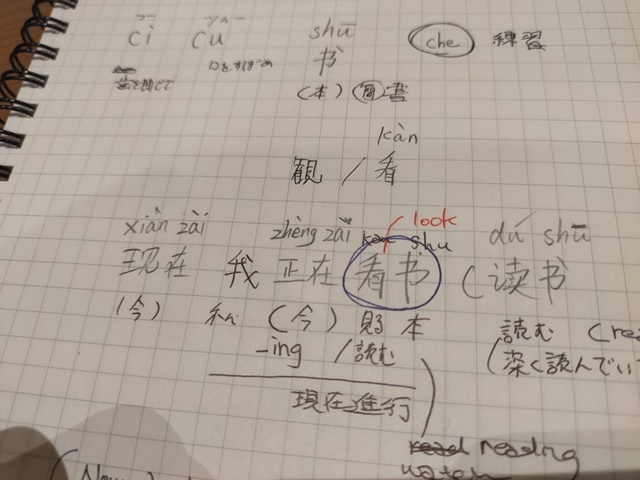 cī cū shū che 練習
书
口をすぼめ
(本) 簡 書
kàn
観 / 看
look
xiàn zài zhèng zài shu dú shū
现在 我 正在 看书 (读书
(今) 私 (今) 見る 本 読む (rea
-ing /読む (深く読んでい
現在進行
reading
(Now